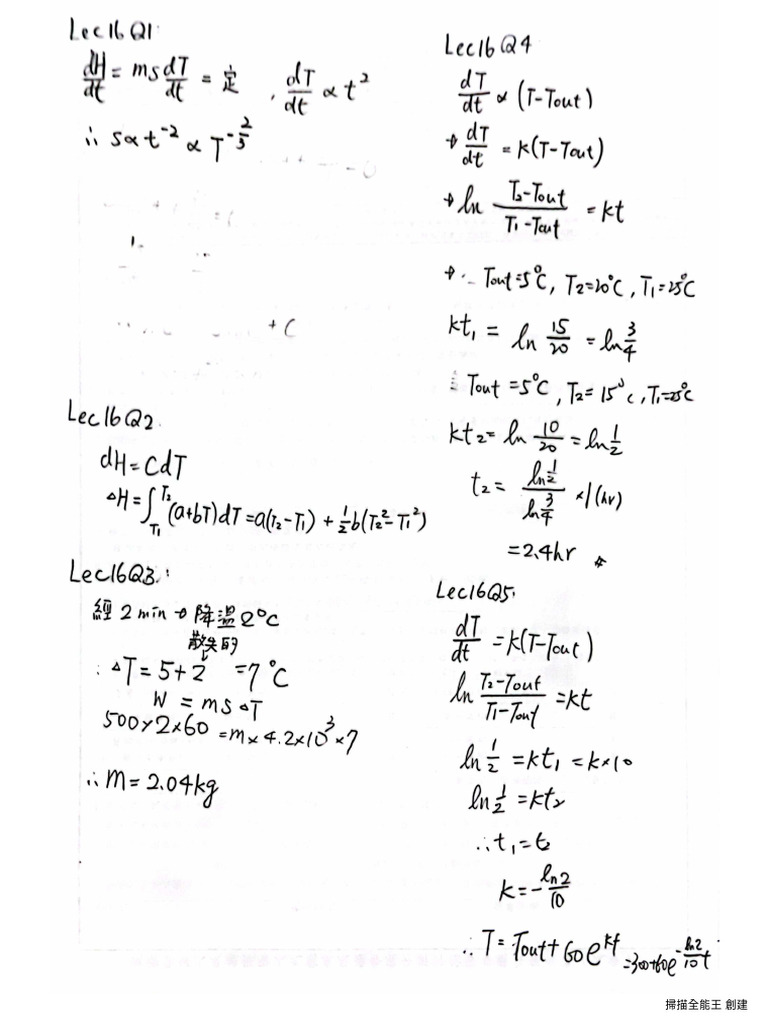 Lec16Q1:
dH/dt = ms dT/dt = 定, dT/dt ∝ t²
∴ s ∝ t⁻² ∝ T^(-2/3)
+ C
Lec16Q2
dH = CdT
△H = ∫_{T1}^{T2} (a+bT)dT = a(T2-T1) + 1/2 b(T2²-T1²)
Lec16Q3:
經 2 min → 降溫 2°C
散失的
∴ △T = 5+2 = 7°C
W = ms△T
500×2×60 = m×4.2×10³×7
∴ M = 2.04kg
Lec16Q4
dT/dt ∝ (T-Tout)
→ dT/dt = K(T-Tout)
→ ln (T2-Tout)/(T1-Tout) = kt
→ ∵ Tout=5°C, T2=20°C, T1=25°C
kt1 = ln 15/20 = ln 3/4
∵ Tout=5°C, T2=15°C, T1=25°C
kt2 = ln 10/20 = ln 1/2
t2 = (ln 1/2)/(ln 3/4) ×1(hr)
= 2.4hr #
Lec16Q5.
dT/dt = k(T-Tout)
ln (T2-Tout)/(T1-Tout) = kt
ln 1/2 = kt1 = k×10
ln 1/2 = kt2
∴ t1 = t2
K = - ln2/10
∴ T = Tout + 60e^{kt} = 300+60e^{-(ln2/10)t}
掃描全能王 創建